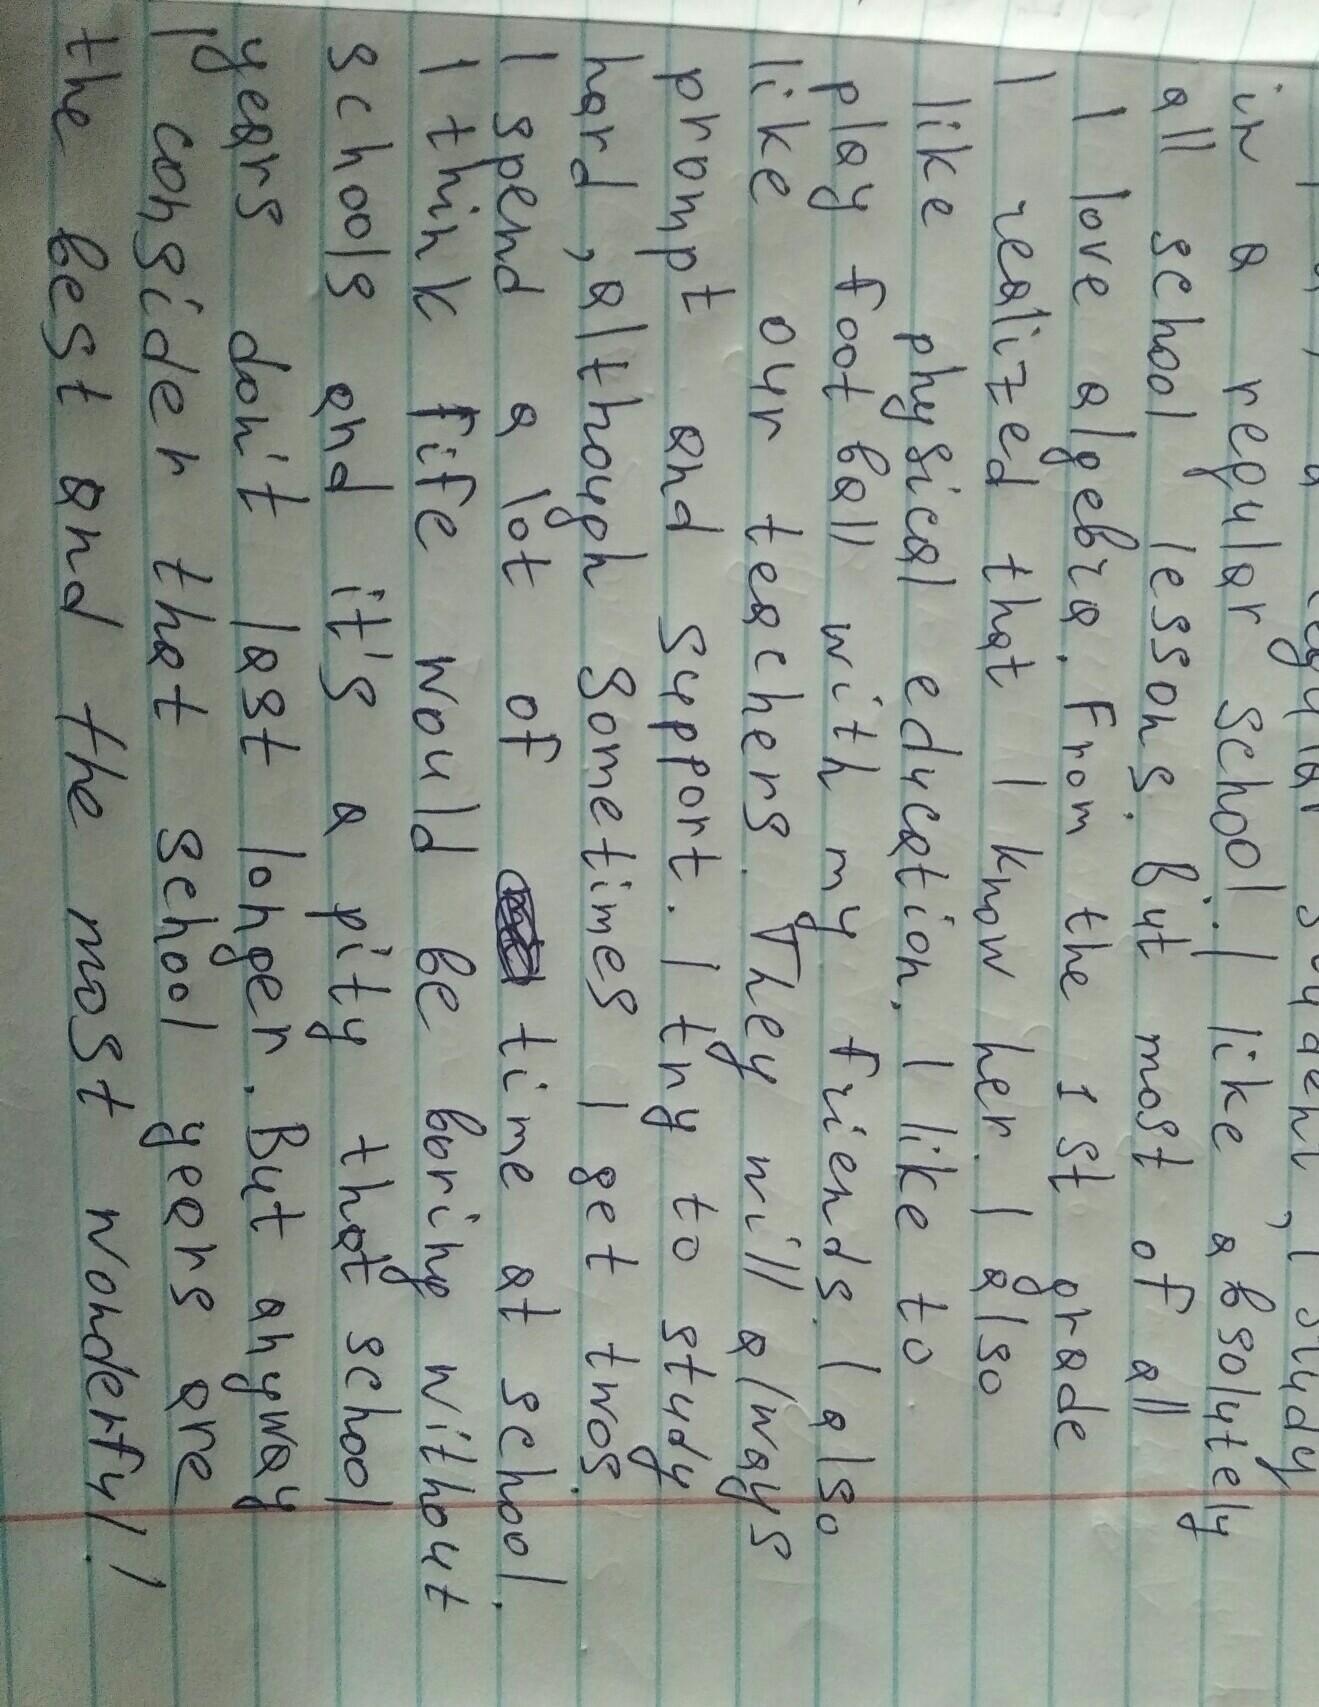 a regular student, I study
in a regular school. I like absolutely
all school lessons. But most of all
I love algebra. From the 1st grade
I realized that I know her. I also
like physical education. I like to
play football with my friends. I also
like our teachers. They will always
prompt and support. I try to study
hard, although sometimes I get twos.
I spend a lot of time at school.
I think fife would be boring without
schools and it's a pity that school
years don't last longer. But anyway
I consider that school years are
the best and the most wonderful!